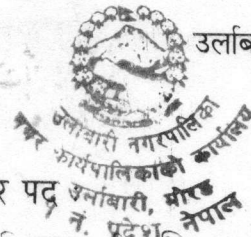 उर्लाब
उर्लाबारी नगरपालिका
नगर कार्यपालिकाको कार्यालय
र पद
उर्लाबारी, मोरङ
नं. प्रदेश, नेपाल